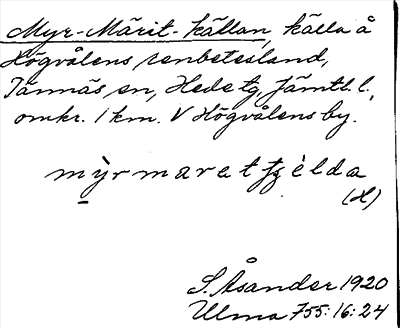 Myr-Märit-källan, källa å
Högvålens renbetesland,
Tännäs sn, Hede tg, Jämtl. l.,
omkr. 1 km. V Högvålens by.
mỳrmaretʃʒèlda
(L)
S. Åsander 1920
Ulma 755:16:24